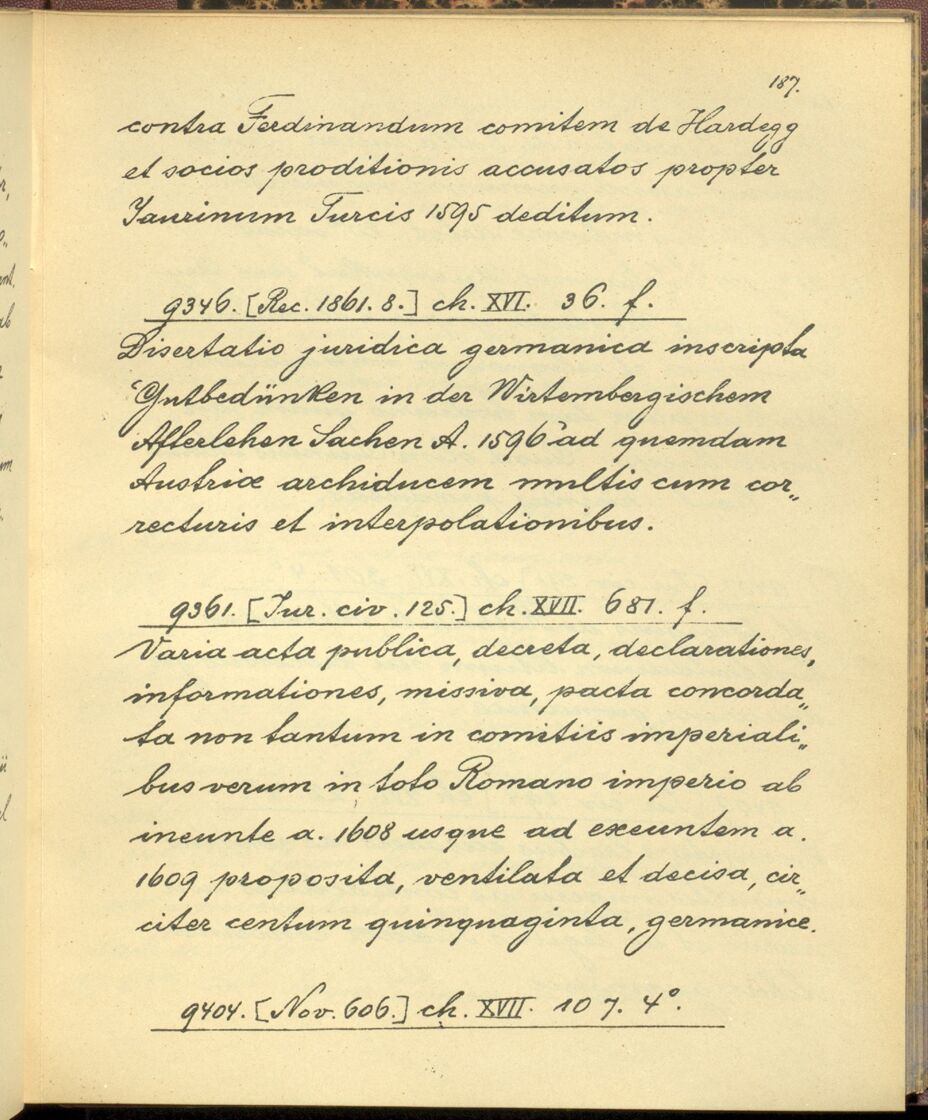 187.
contra Ferdinandum comitem de Hardegg
et socios proditionis accusatos propter
Jaurinum Turcis 1595 deditum.
9346. [Rec. 1861. 8.] ch. XVI. 36. f.
Disertatio juridica germanica inscripta
‘Gutbedünken in der Wirtembergischem
Afferlehen Sachen A. 1596’ ad quemdam
Austriæ archiducem multis cum cor„
recturis et interpolationibus.
9361. [Jur. civ. 125.] ch. XVII. 681. f.
Varia acta publica, decreta, declarationes,
informationes, missiva, pacta concorda„
ta non tantum in comitiis imperiali„
bus verum in toto Romano imperio ab
ineunte a. 1608 usque ad exeuntem a.
1609 proposita, ventilata et decisa, cir„
citer centum quinquaginta, germanice.
9404. [Nov. 606.] ch. XVII. 107. 4°.